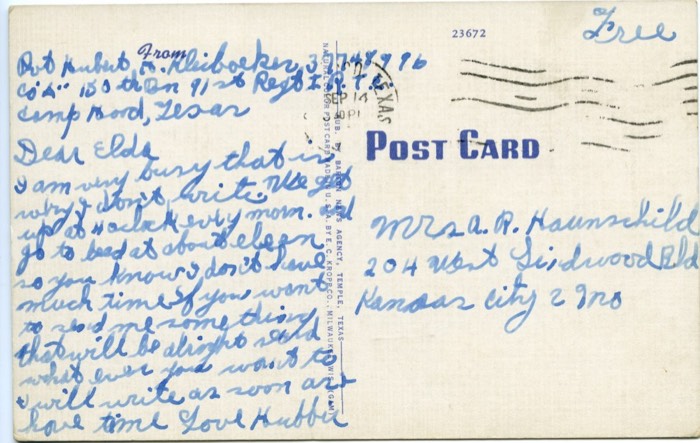 23672
Free
From
Pvt Hubert H. Kleiboeker
Co "A" 150 th Bn 91 st Regt I.R.T.C.
Camp Hood, Texas
Dear Elda
I am very busy that is
why I don't write. We get
up at 4 oclock every morn. and
go to beed at about eleven
so you know I don't have
much time if you want
to send me something
that will be alright send
what ever you want to
I will write as soon as I
have time Love Hubber
TEXAS
POST CARD
PUB. BY BARTON NEWS AGENCY, TEMPLE, TEXAS
NATURAL COLOR POST CARD MADE IN U. S. A. BY E. C. KROPP CO., MILWAUKEE, WIS.
Mrs A. R. Haunschild
204 West Lindwood Bld
Kansas City 2 Mo